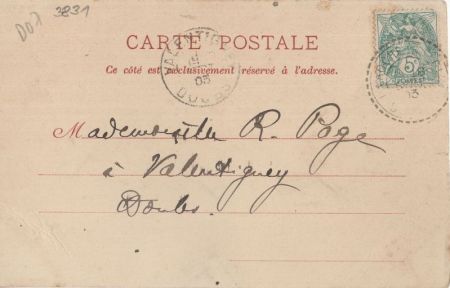 Dof 3831
CARTE POSTALE
Ce côté est exclusivement réservé à l'adresse.
VALENTIGNEY
03
DOUBS
5
POSTES
03
Mademoiselle R. Page
à Valentigney
Doubs.